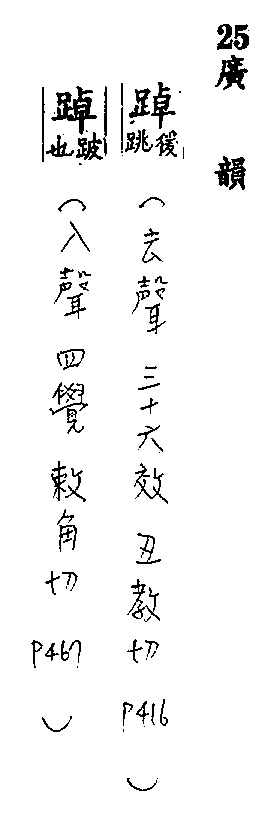 25廣韻
踔 猨跳（去聲 三十六效 丑教切 P416）
踔 跛也（入聲 四覺 敕角切 P467）